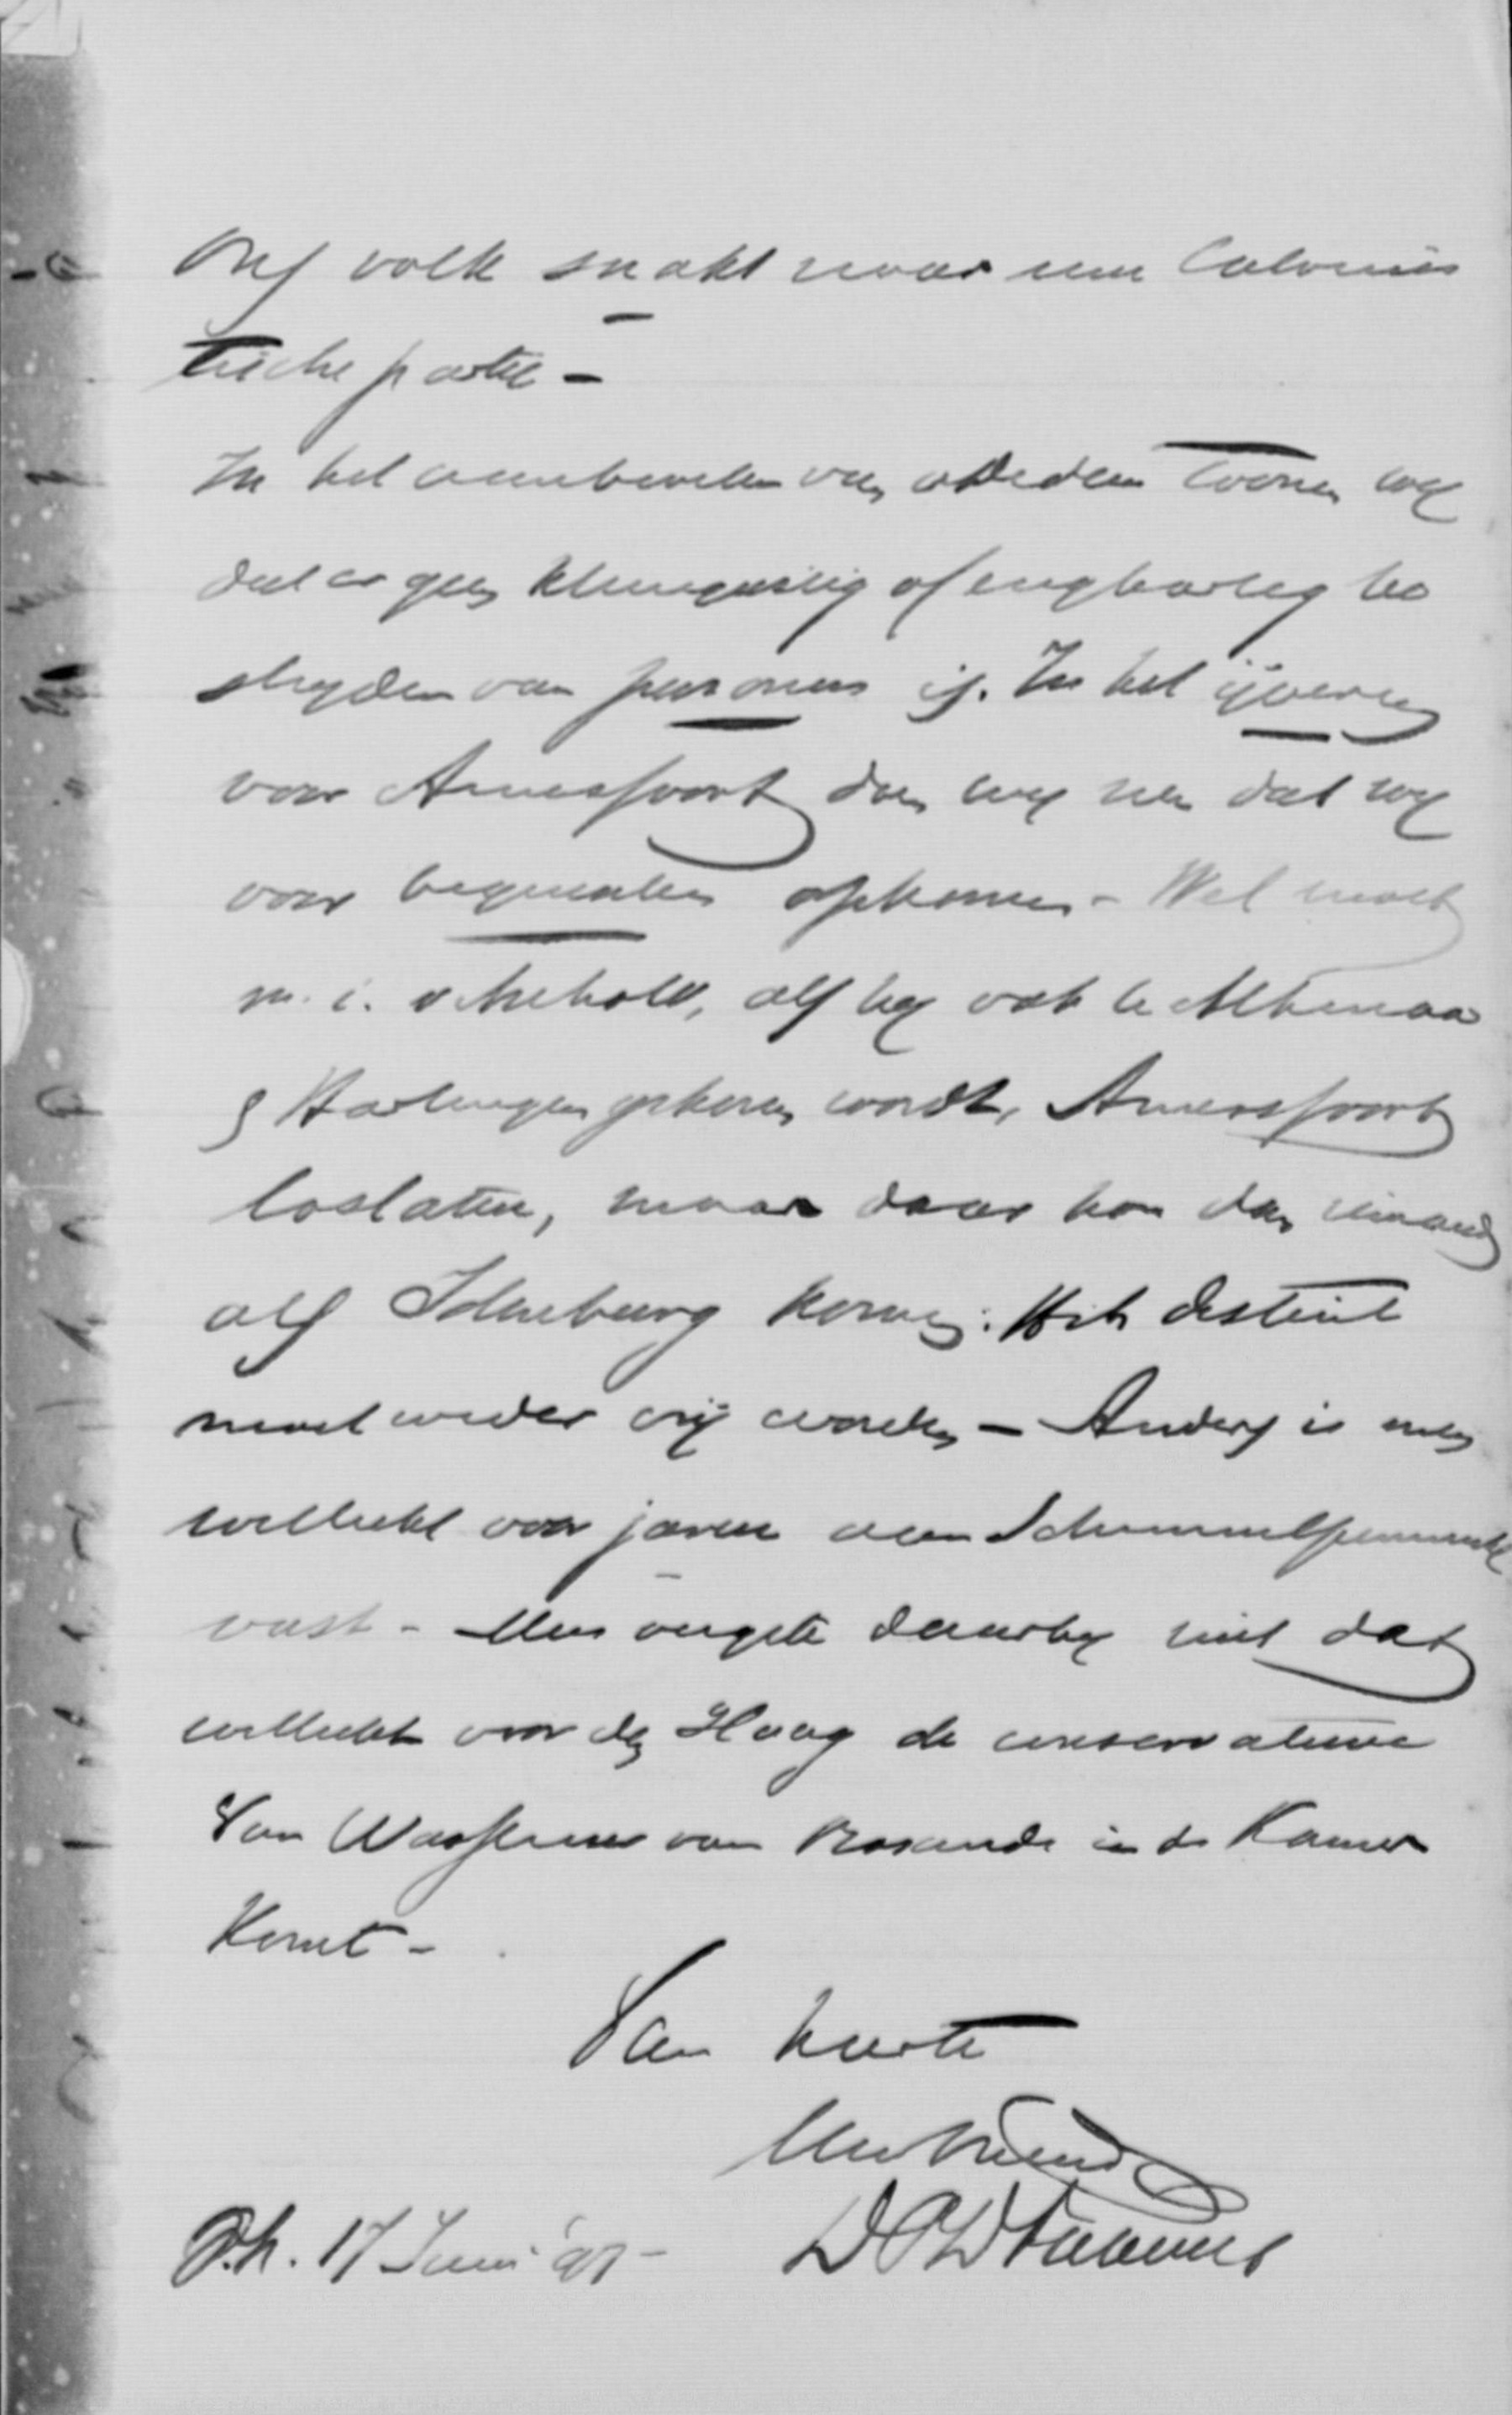 Ons volk snakt naar een Calvinis
tische partij –
In het aanbevelen van v Dedem toonen wij
dat er geen kleingeestig of enghartig be
strijden van personen is. In het ijveren
voor Amersfoort doen wij zien dat wij
voor beginselen opkomen – Wel moet
m. i. als hij ook te Alkmaar
Harlingen gekozen wordt, Amersfoort
loslaten, maar daar kon dan iemand
als Idenburg komen. Het district
moet weder vrij worden – Anders is men
wellicht voor jaren aan Schimmelpenninck
vast – Men vergete daarbij niet dat
wellicht voor den Haag de conservatieve
Van Wassenaer van Rosande in de Kamer
komt –
Van harte
Uw vriend
17 Juni